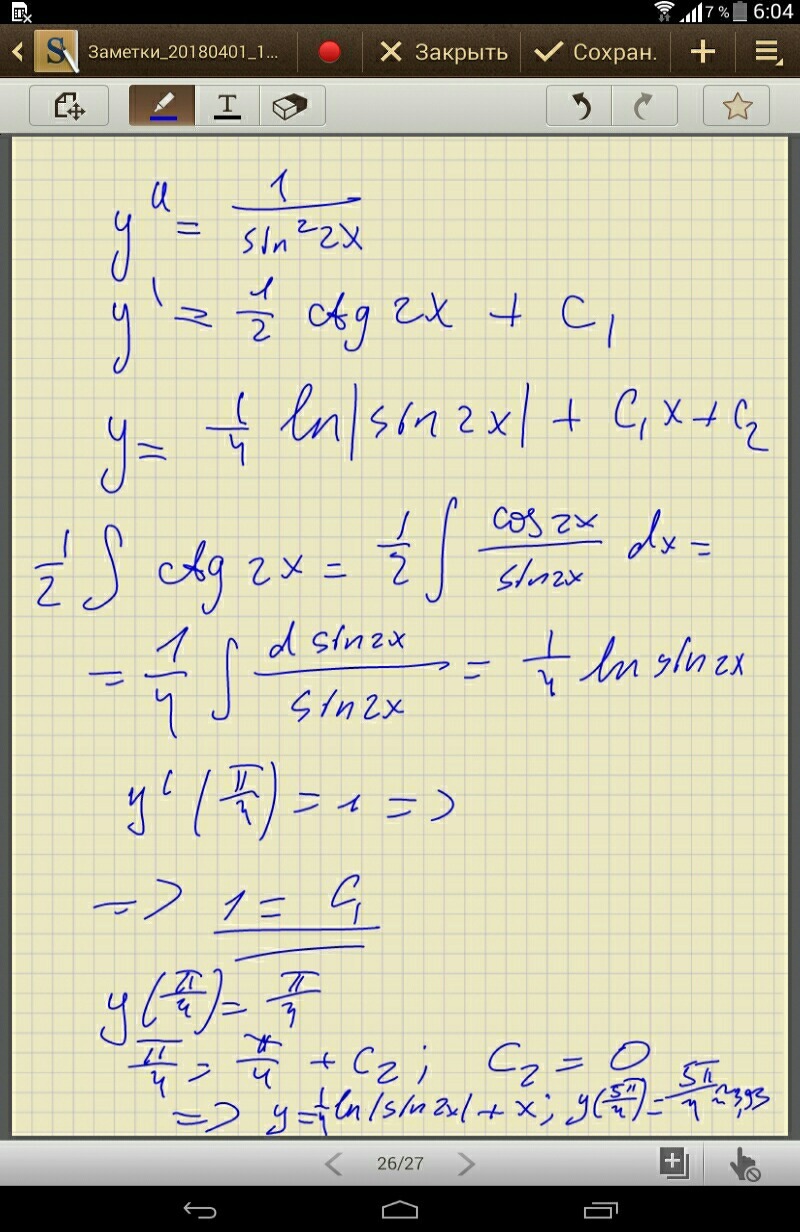 7 % 6:04
Заметки_20180401_1... Закрыть Сохран.
T
y'' = 1/sin²2x
y' = 1/2 ctg 2x + C₁
y = 1/4 ln|sin 2x| + C₁x + C₂
1/2 ∫ ctg 2x = 1/2 ∫ cos 2x/sin 2x dx =
= 1/4 ∫ d sin 2x/sin 2x = 1/4 ln sin 2x
y'(π/4) = 1 =>
=> 1 = C₁
y(π/4) = π/4
π/4 = π/4 + C₂; C₂ = 0
=> y = 1/4 ln|sin 2x| + x; y(5π/4) = 5π/4 ≈ 3,93
26/27